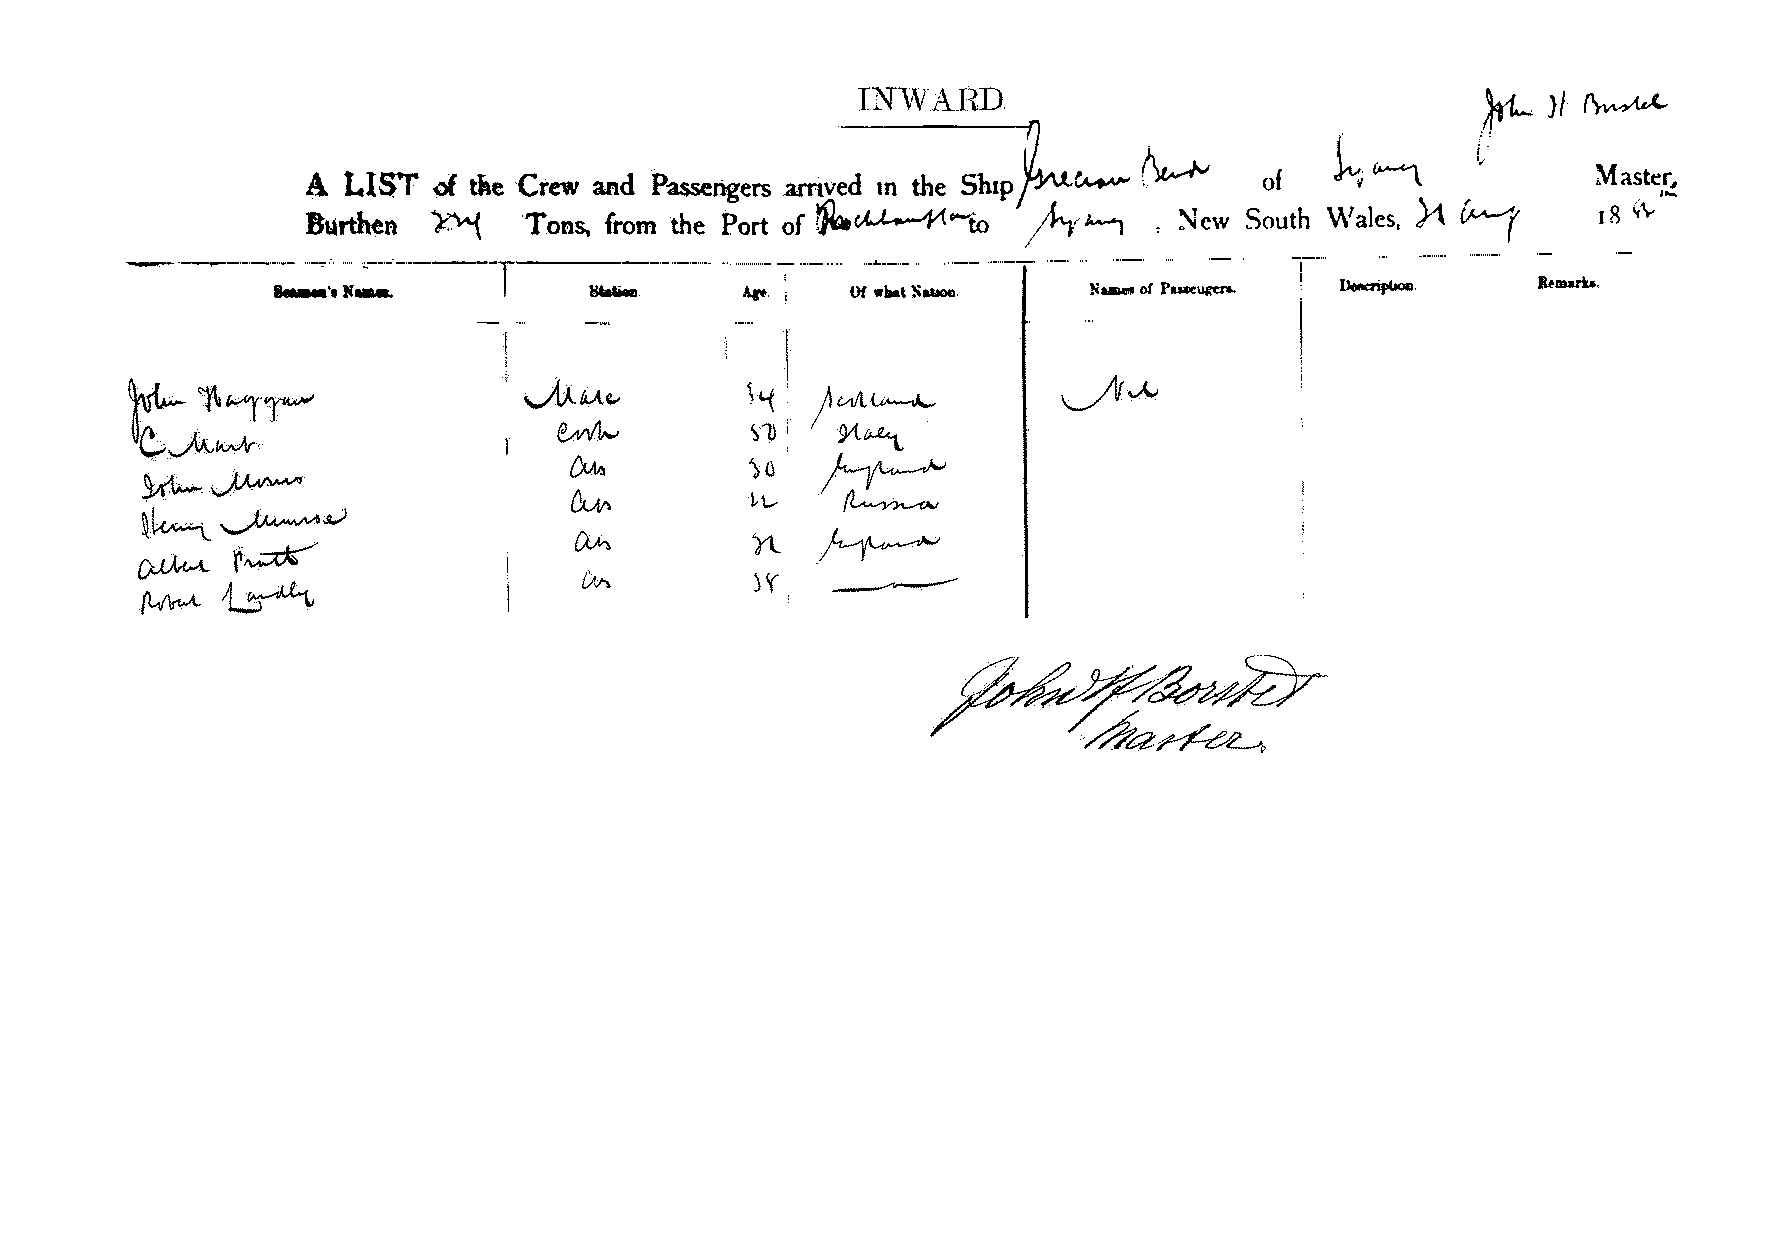 INWARD
John H
A LIST of the Crew and Passengers arrived in the Ship Grecian Bend of Sydney Master,
Burthen 224 Tons, from the Port of Rockhampton to Sydney, New South Wales, 21 Aug 18
Seamen's Names. Station. Age. Of what Nation. Names of Passengers. Description. Remarks.
John Mate 34 Scotland Nil
C. Cook 50 Italy
John Morris AB 30 England
Henry Munroe AB 22 Russia
Albert Pratt AB England
Robert Landly AB 38 —
John H Borstel
Master.